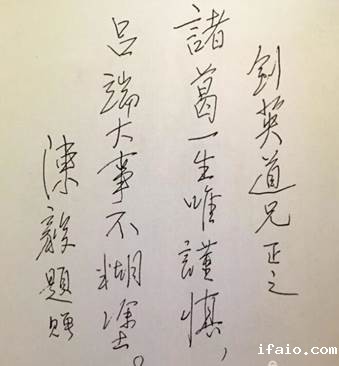 劍英道兄正之
諸葛一生唯謹慎，
吕端大事不糊塗。
陳毅題贈
ifaio.com